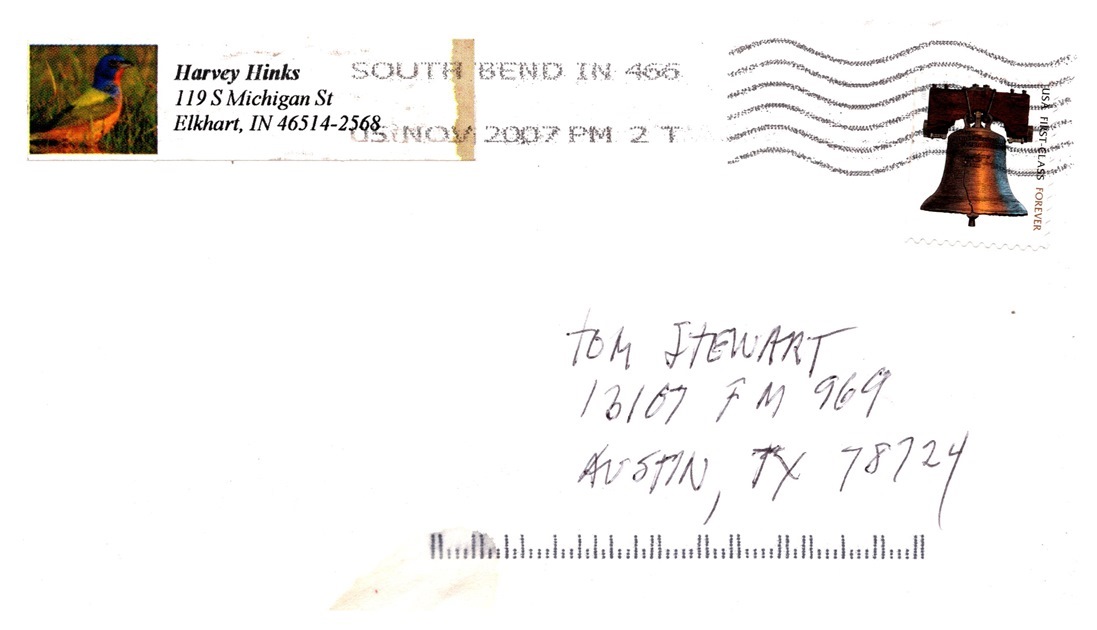 Harvey Hinks
119 S Michigan St
Elkhart, IN 46514-2568
SOUTH BEND IN 466
05 NOV 2007 PM 2 T
USA FIRST-CLASS FOREVER
TOM STEWART
13107 FM 969
AUSTIN, TX 78724